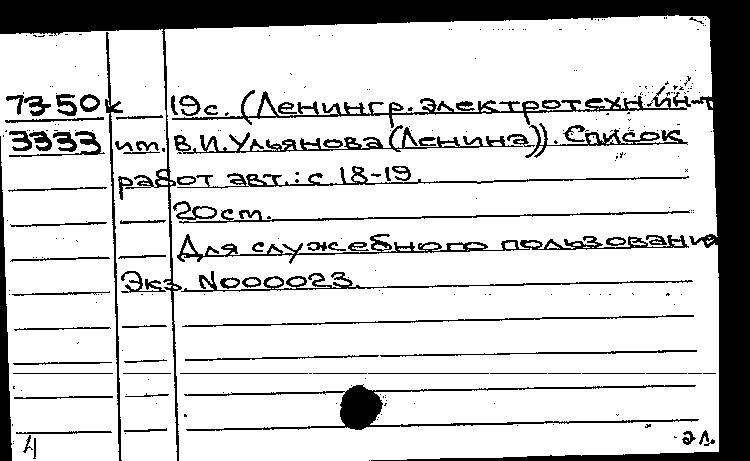 73-50к 19с. (Ленингр.электротехн.ин-т
3333 им. В.И.Ульянова(Ленина)). Список
работ авт.: с 18-19.
20cm.
Для служебного пользования
Экз. N000023.
4 эл.